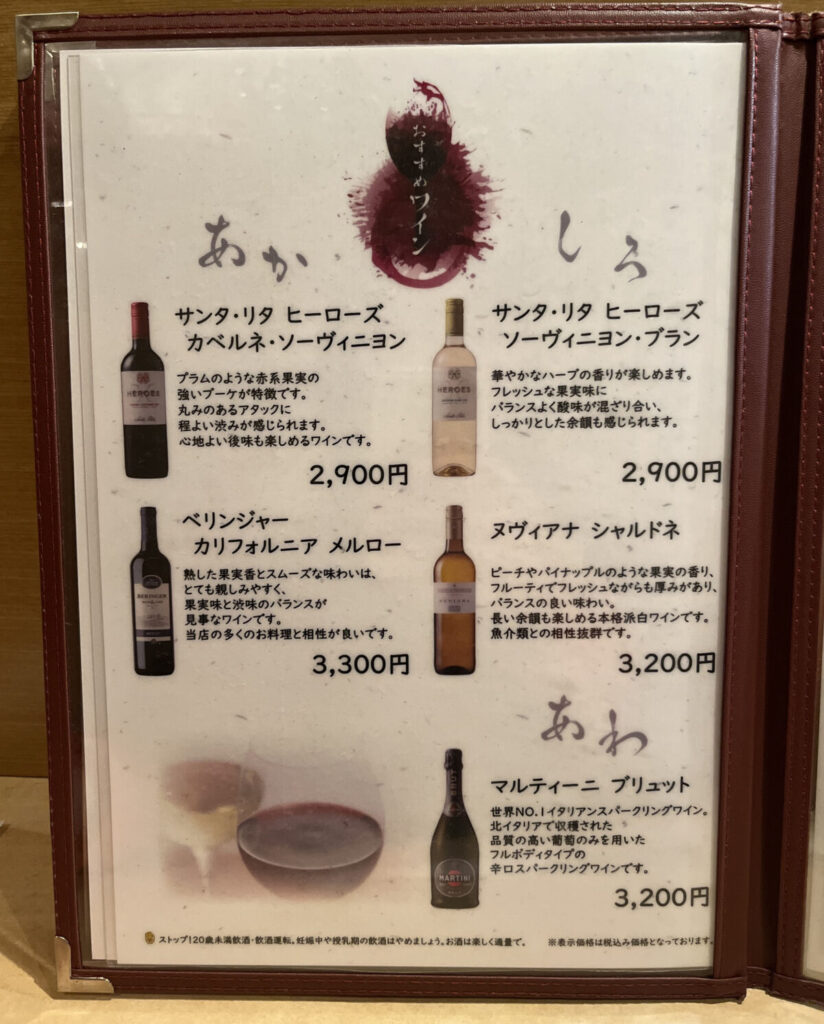 おすすめワイン
あか
サンタ・リタ ヒーローズ
カベルネ・ソーヴィニヨン
プラムのような赤系果実の
強いブーケが特徴です。
丸みのあるアタックに
程よい渋みが感じられます。
心地よい後味も楽しめるワインです。
2,900円
HEROES
ベリンジャー
カリフォルニア メルロー
熟した果実香とスムーズな味わいは、
とても親しみやすく、
果実味と渋味のバランスが
見事なワインです。
当店の多くのお料理と相性が良いです。
3,300円
BERINGER
しろ
サンタ・リタ ヒーローズ
ソーヴィニヨン・ブラン
華やかなハーブの香りが楽しめます。
フレッシュな果実味に
バランスよく酸味が混ざり合い、
しっかりとした余韻も感じられます。
2,900円
HEROES
ヌヴィアナ シャルドネ
ピーチやパイナップルのような果実の香り、
フルーティでフレッシュながらも厚みがあり、
バランスの良い味わい。
長い余韻も楽しめる本格派白ワインです。
魚介類との相性抜群です。
3,200円
あわ
マルティーニ ブリュット
世界NO.1イタリアンスパークリングワイン。
北イタリアで収穫された
品質の高い葡萄のみを用いた
フルボディタイプの
辛口スパークリングワインです。
3,200円
MARTINI
ストップ!20歳未満飲酒・飲酒運転。妊娠中や授乳期の飲酒はやめましょう。お酒は楽しく適量で。
※表示価格は税込み価格となっております。